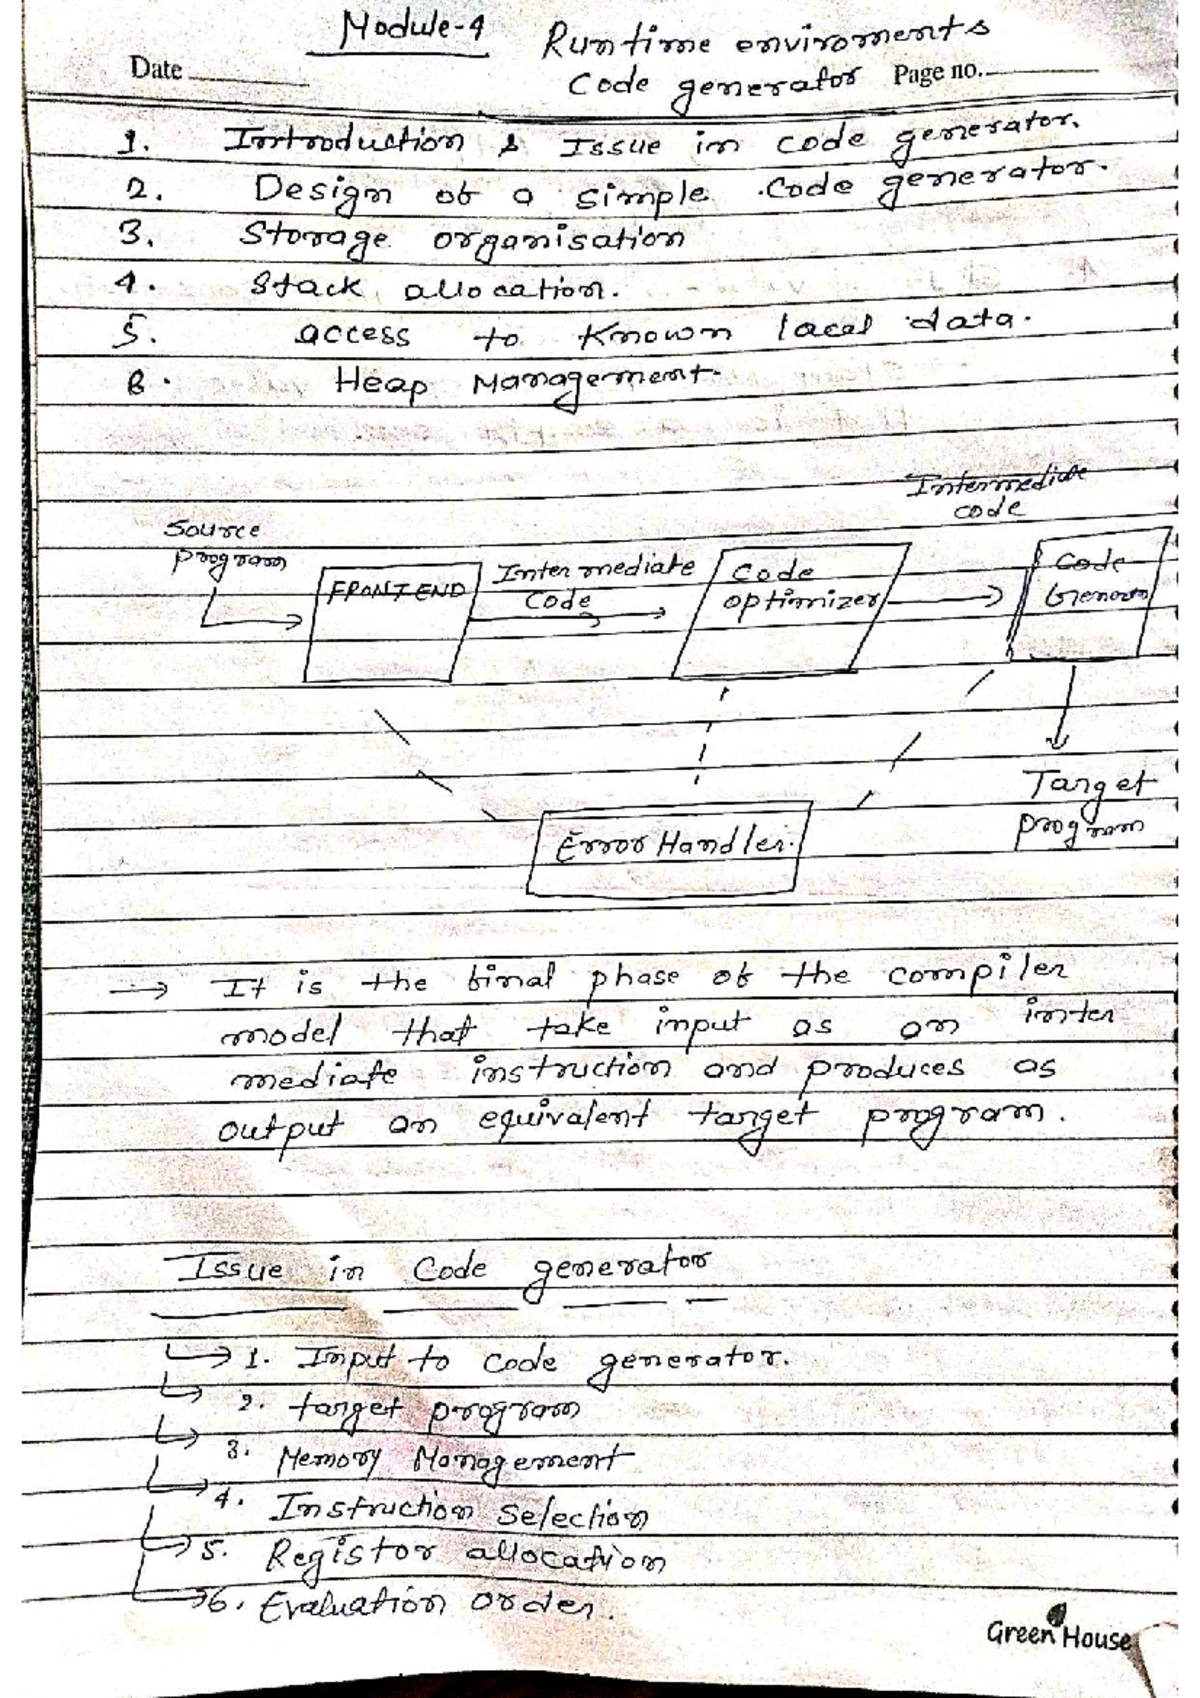 Module-4 Runtime enviroments
Date Code generator Page no.
1. Introduction & Issue in code generator.
2. Design of a simple code generator.
3. Storage organisation
4. Stack allocation.
5. access to known local data.
6. Heap Management
Intermediate
code
Source
program
FRONT END
Intermediate
Code
Code
optimizer
Code
Target
program
Error Handler.
→ It is the final phase of the compiler
model that take input as an inter
mediate instruction and produces as
output an equivalent target program.
Issue in Code generator
1. Input to code generator.
2. target program
3. Memory Management
4. Instruction Selection
5. Registor allocation
6. Evaluation order.
Green House